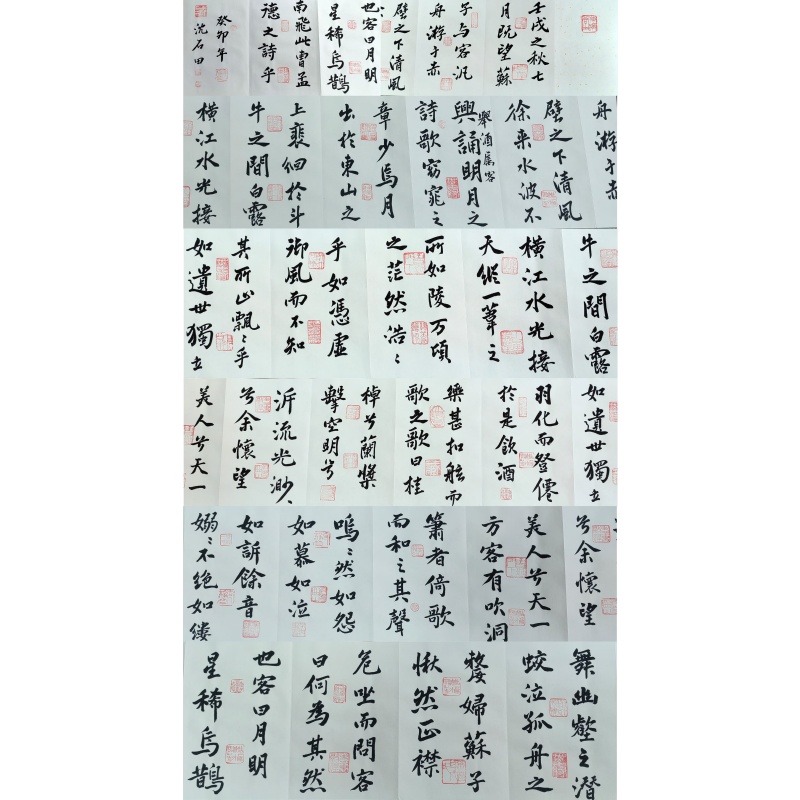 壬戌之秋七
月既望蘇
子与客汎
舟游于赤
壁之下清風
也客曰月明
星稀烏鵲
南飛此曹孟
德之詩乎
癸卯年
沈石田
舟游于赤
壁之下清風
徐来水波不
舉酒属客
興誦明月之
詩歌窈窕之
章少焉月
出於東山之
上裵徊於斗
牛之間白露
橫江水光接
牛之間白露
橫江水光接
天縱一葦之
所如陵万頃
之茫然浩〻
乎如憑虛
御風而不知
其所止飄〻乎
如遺世獨立
如遺世獨立
羽化而登僊
於是飲酒
樂甚扣舷而
歌之歌曰桂
棹兮蘭槳
擊空明兮
泝流光渺〻
兮余懷望
美人兮天一
兮余懷望
美人兮天一
方客有吹洞
簫者倚歌
而和之其聲
嗚〻然如怨
如慕如泣
如訴餘音
嫋〻不絕如縷
舞幽壑之潛
蛟泣孤舟之
嫠婦蘇子
愀然正襟
危坐而問客
曰何為其然
也客曰月明
星稀烏鵲